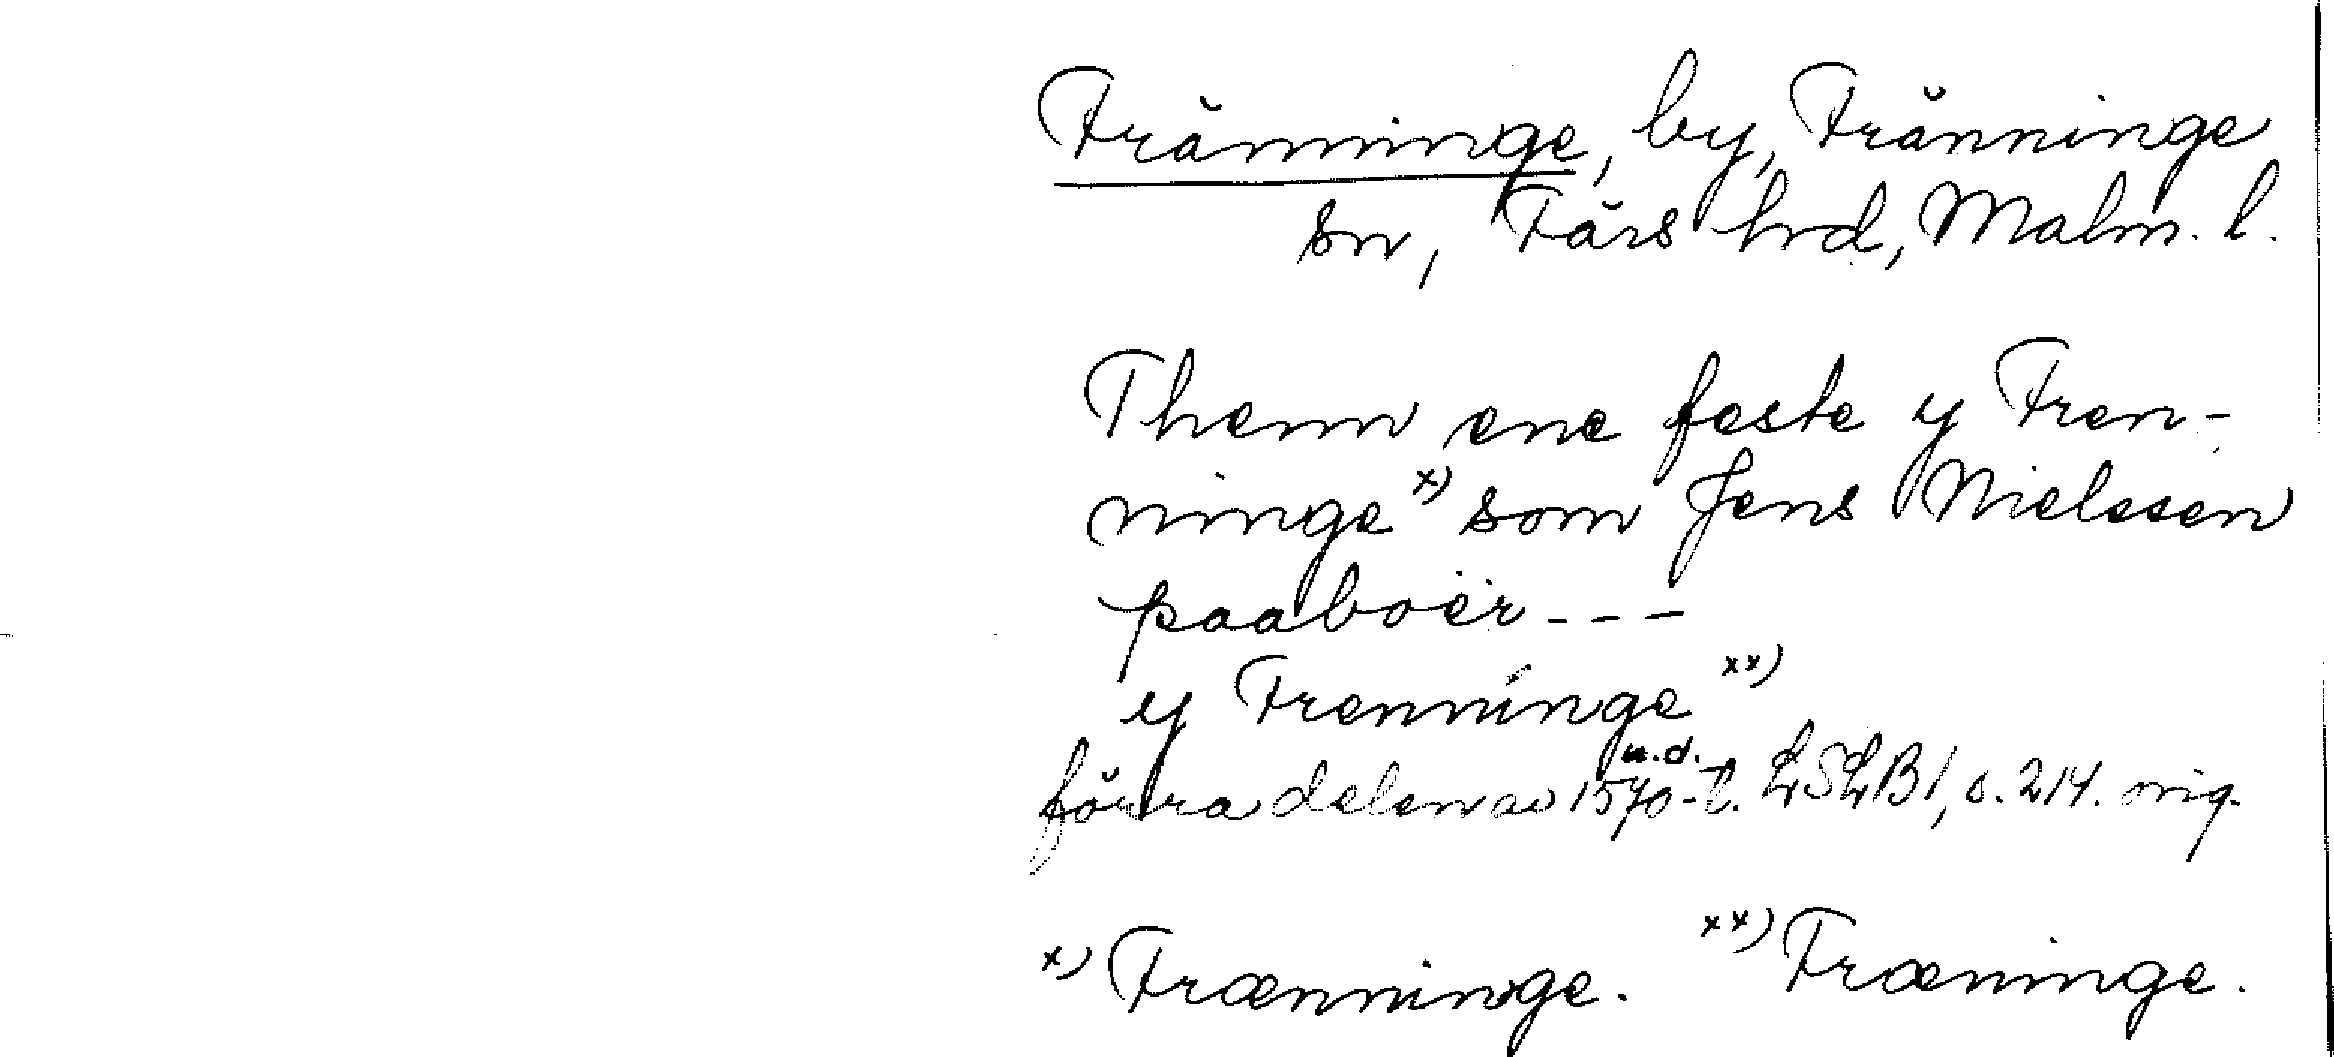 Fränninge, by, Fränninge
sn, Färs hrd, Malm. l.
Thenn ene feste y Fren-
ninge x) som Jens Nielssen
paaboër ---
y Frenninge xx)
förra delen av 1570-t. u.d. LSLB I, s. 214. orig.
x) Frænninge. xx) Fræninge.